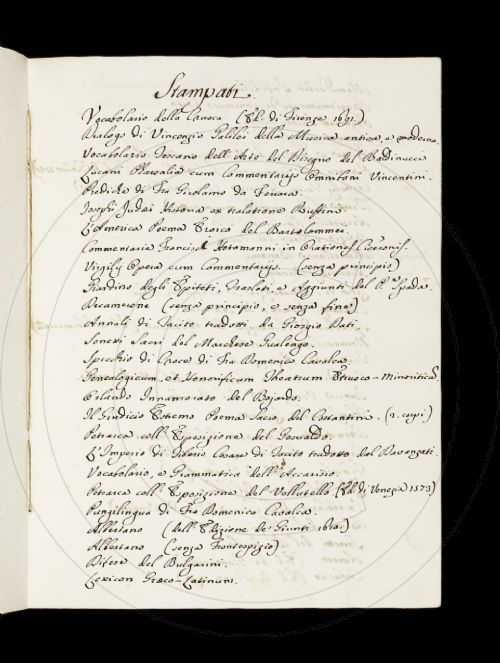 Stampati.
Vocabolario della Crusca (Ed. di Firenze 1691.)
Dialogo di Vincenzio Galilei della Musica antica, e moderna.
Vocabolario Toscano dell'Arte del Disegno del Baldinucci
Lucani Pharsalia cum Commentarijs Omniboni Vincentini.
Prediche di Fra Girolamo da Ferrara.
Josephi Judei Historia ex tralatione Ruffini
L'America Poema Eroico del Bartolommei.
Commentaria Francisci Hotomanni in Orationes Ciceronis.
Virgilij Opera cum Commentarijs. (senza principio)
Giardino degli Epiteti, Traslati, e Aggiunti del Spada.
Decamerone (senza principio, e senza fine)
Annali di Tacito tradotti da Giorgio Dati.
Sonetti Sacri del Marchese Gualengo.
Specchio di Croce di Fra Domenico Cavalca
Genealogicum, et Honorificum Theatrum Etrusco-Minoriticu.
Orlando Innamorato del Bojardo.
Il Giudicio Estremo Poema Sacro del Costantini. (2. copi.)
Petrarca coll'Esposizione del Gesualdo.
L'Imperio di Tiberio Cesare di Tacito tradotto dal Davanzati.
Vocabolario, e Grammatica dell'Accarisio.
Petrarca coll'Esposizione del Vellutello (Ed. di Venezia 1573)
Pungilingua di Fra Domenico Cavalca.
Albertano (dell'Edizione de' Giunti 1610.)
Albertano (senza Frontespizio)
Difese del Bulgarini.
Lexicon Græco-Latinum.